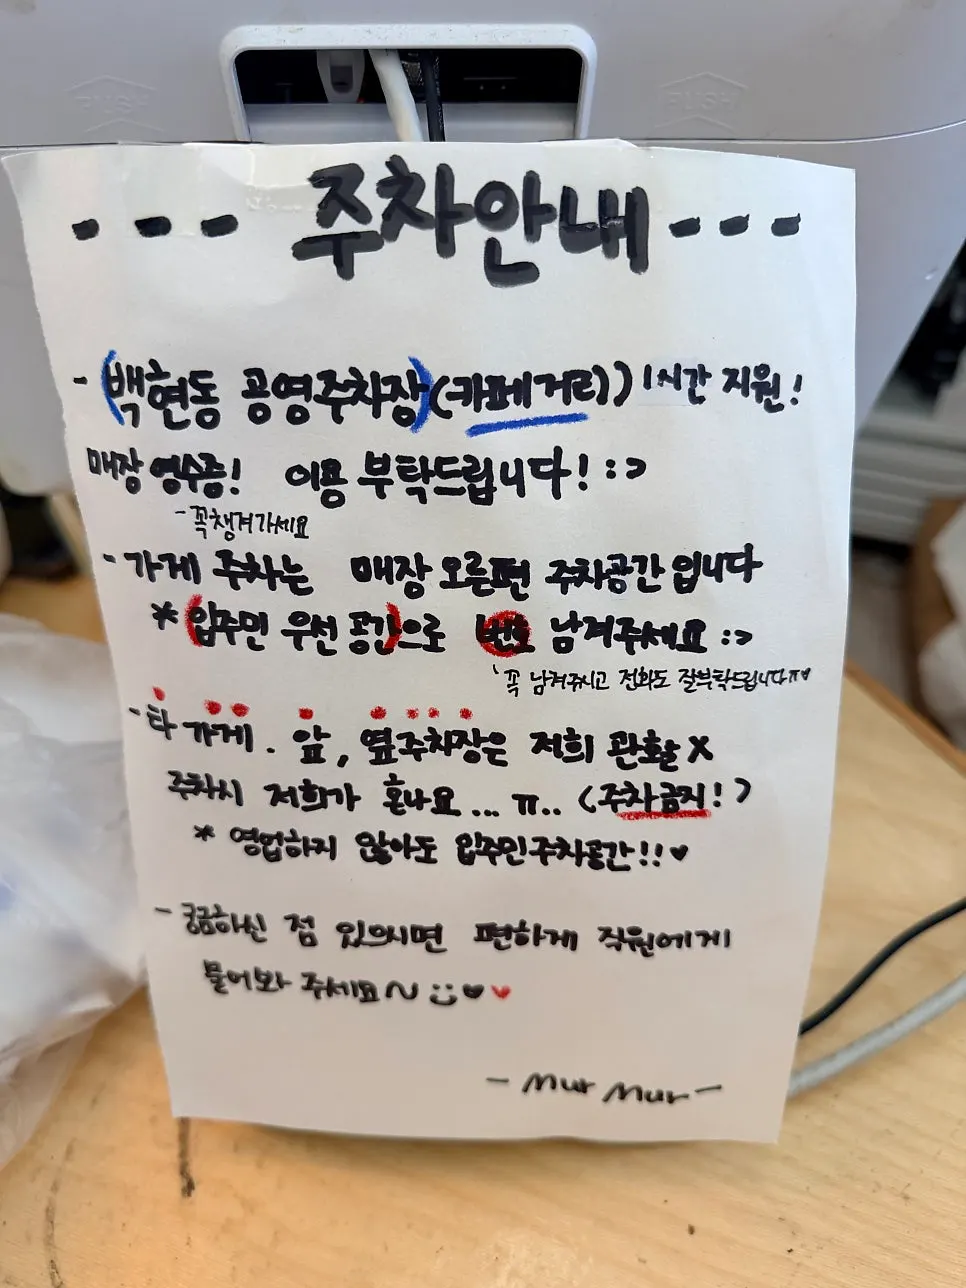 PUSH PUSH
--- 주차안내 ---
- (백현동 공영주차장)(카페거리) 1시간 지원!
매장 영수증! 이용 부탁드립니다! :>
- 꼭 챙겨가세요
- 가게 주차는 매장 오른편 주차공간 입니다
* (입주민 우선 공간)으로 번호 남겨주세요 :>
' 꼭 남겨주시고 전화도 잘부탁드립니다ㅠ♥
- 타 가게. 앞, 옆주차장은 저희 관할 X
주차시 저희가 혼나요... ㅠ.. (주차금지!)
* 영업하지 않아도 입주민주차공간!!♥
- 궁금하신 점 있으시면 편하게 직원에게
물어봐 주세요~ :) ♥♥
- Mur Mur -